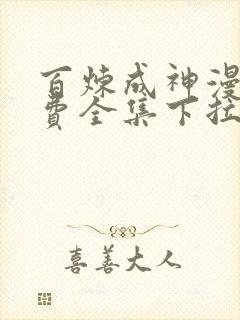 百炼成神漫
费全集下拉
喜善大人